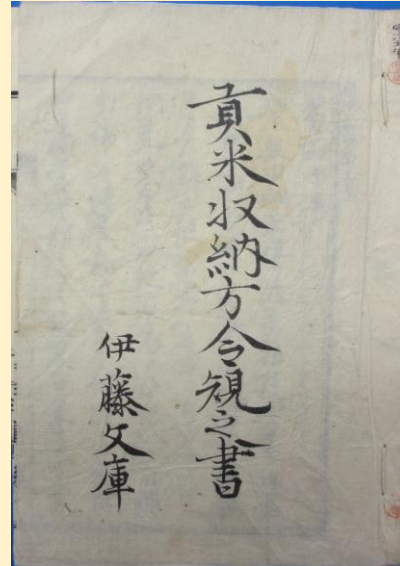 貢米収納方令規之書
伊藤文庫